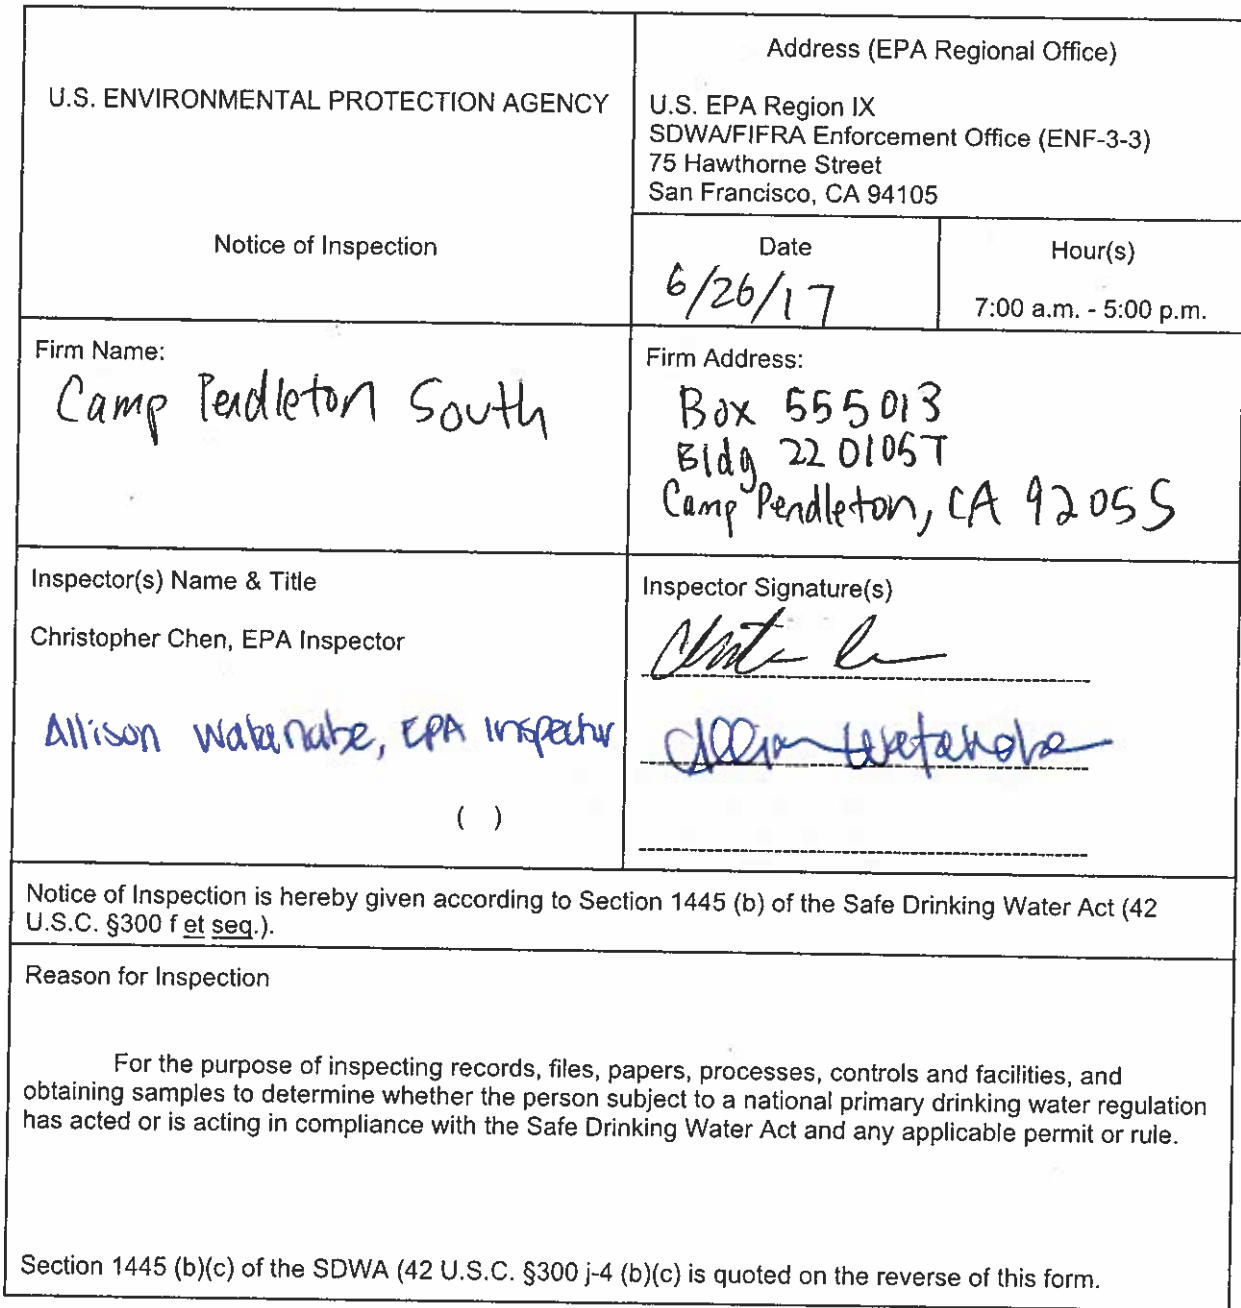 U.S. ENVIRONMENTAL PROTECTION AGENCY
Notice of Inspection
Address (EPA Regional Office)
U.S. EPA Region IX
SDWA/FIFRA Enforcement Office (ENF-3-3)
75 Hawthorne Street
San Francisco, CA 94105
Date
6/26/17
Hour(s)
7:00 a.m. - 5:00 p.m.
Firm Name:
Camp Pendleton South
Firm Address:
Box 555013
Bldg 220105T
Camp Pendleton, CA 92055
Inspector(s) Name & Title
Christopher Chen, EPA Inspector
Allison Watanabe, EPA Inspector
( )
Inspector Signature(s)
Allison Watanabe
Notice of Inspection is hereby given according to Section 1445 (b) of the Safe Drinking Water Act (42
U.S.C. §300 f et seq.).
Reason for Inspection
For the purpose of inspecting records, files, papers, processes, controls and facilities, and
obtaining samples to determine whether the person subject to a national primary drinking water regulation
has acted or is acting in compliance with the Safe Drinking Water Act and any applicable permit or rule.
Section 1445 (b)(c) of the SDWA (42 U.S.C. §300 j-4 (b)(c) is quoted on the reverse of this form.